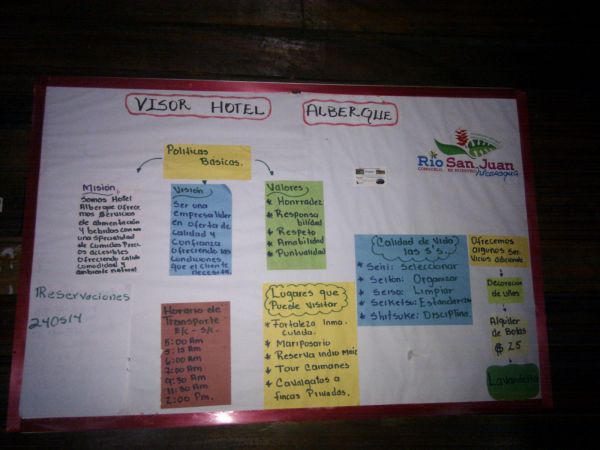 VISOR HOTEL ALBERQUE
Politicas
Básicas.
Misión
Somos Hotel
Alberque ofrece
mos Servicios
de alimentación
y bebidas con
una especialidad
de Comidas
accesibles
Ofreciendo
comodidad y
ambiente natural
Visión
Ser una
empresa lider
en oferta de
Calidad y
Confianza
Ofreciendo las
Condiciones
que el cliente
necesita.
Valores
* Honrradez
* Responsa
bilidad
* Respeto
* Amabilidad
* Puntualidad
Río San Juan
Nicaragua
Calidad de Vida
las 5's.
* Seiri: Seleccionar
* Seiton: Organizar
* Seiso: Limpiar
* Seiketsu: Estandarizar
* Shitsuke: Disciplina.
Ofrecemos
algunos Ser
vicios adicionales
Decoración
de uñas
Alquiler
de Botas
$ 25
Lavandería
Reservaciones
240514
Horario de
Transporte
E/C - S/C.
5:00 Am
5:15 Am
6:00 Am
7:00 Am
9:30 Am
11:30 Am
2:00 Pm.
Lugares que
Puede Visitar
* Fortaleza Inma
culada.
* Mariposario
* Reserva Indio Maíz
* Tour Caimanes
* Cavalgatas a
fincas Privadas.